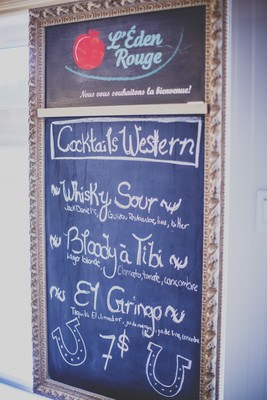 L'Éden
Rouge
Nous vous souhaitons la bienvenue!
Cocktails Western
Whisky Sour
Jack Daniel's,
Bloody à Tibi
Lager blonde
Clamato, tomate, concombre
El Gringo
Tequila El Jimador, jus de
7$